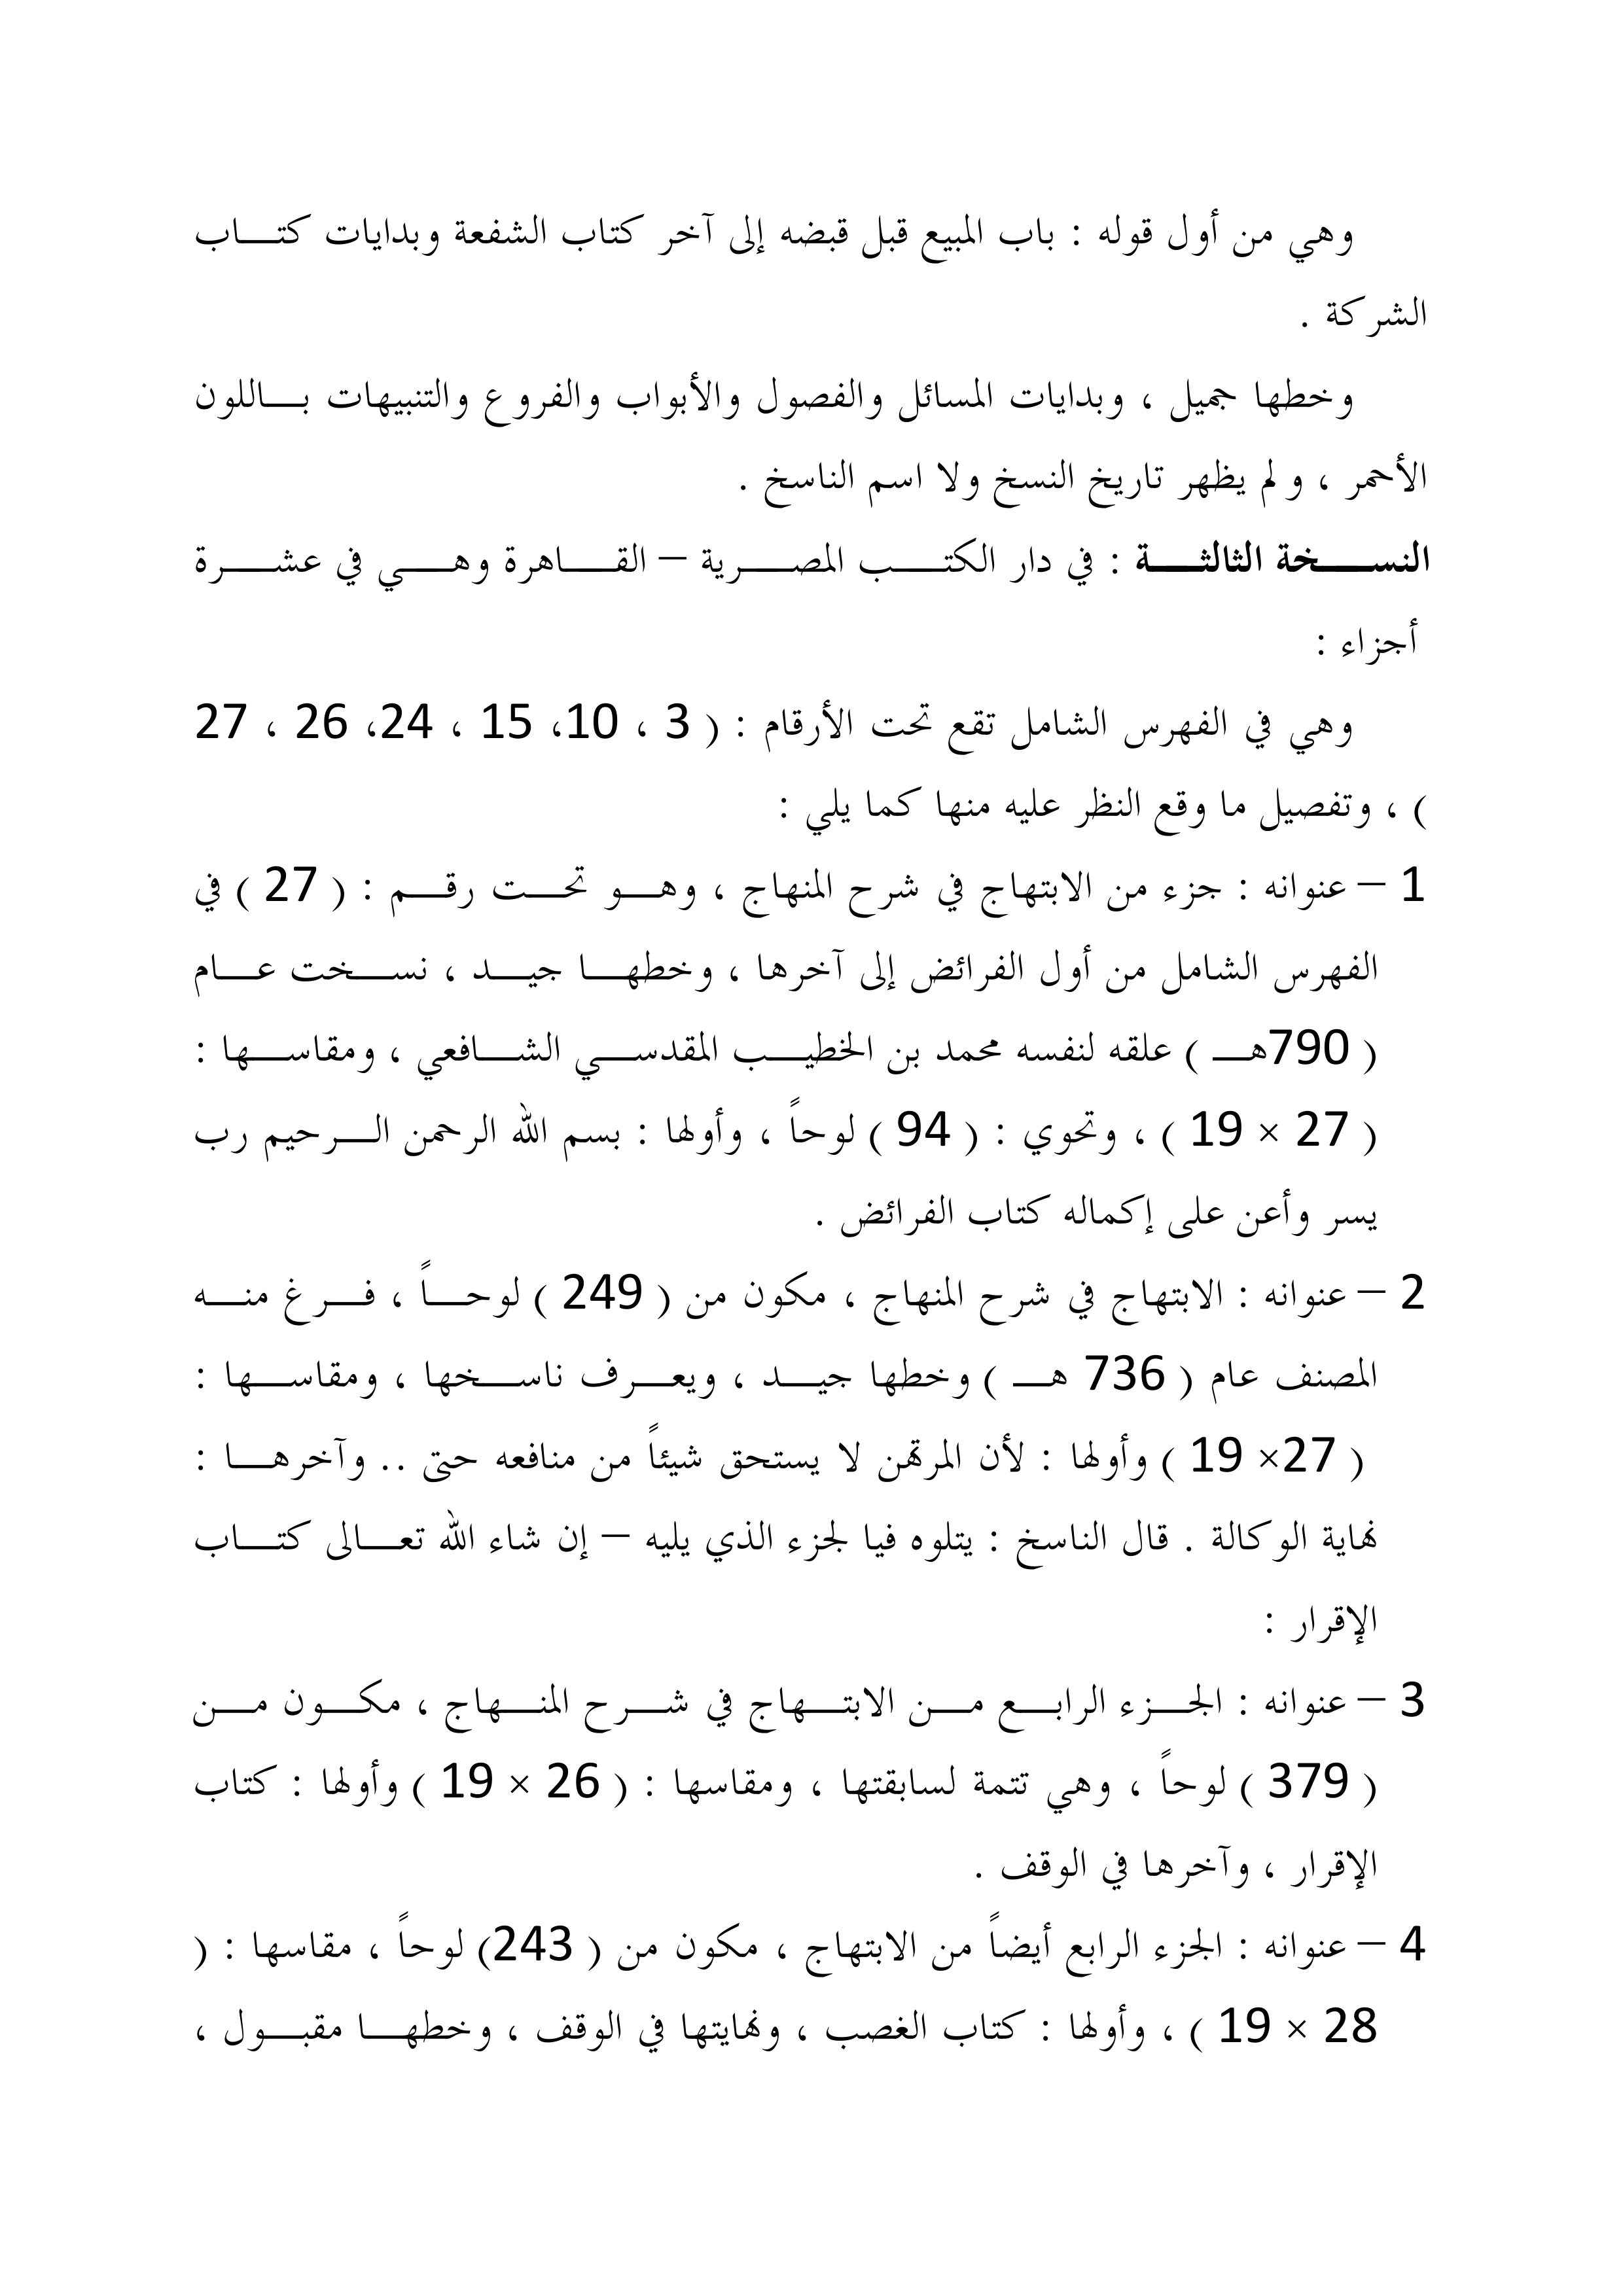 وهي من أول قوله : باب المبيع قبل قبضه إلى آخر كتاب الشفعة وبدايات كتاب
الشركة .
وخطها جميل ، وبدايات المسائل والفصول والأبواب والفروع والتنبيهات باللون
الأحمر ، ولم يظهر تاريخ النسخ ولا اسم الناسخ .
النسخة الثالثة : في دار الكتب المصرية – القاهرة وهي في عشرة
أجزاء :
وهي في الفهرس الشامل تقع تحت الأرقام : ( 3 ، 10، 15 ، 24، 26 ، 27
) ، وتفصيل ما وقع النظر عليه منها كما يلي :
1 – عنوانه : جزء من الابتهاج في شرح المنهاج ، وهو تحت رقم : ( 27 ) في
الفهرس الشامل من أول الفرائض إلى آخرها ، وخطها جيد ، نسخت عام
( 790هـ ) علقه لنفسه محمد بن الخطيب المقدسي الشافعي ، ومقاسها :
( 27 × 19 ) ، وتحوي : ( 94 ) لوحاً ، وأولها : بسم الله الرحمن الرحيم رب
يسر وأعن على إكماله كتاب الفرائض .
2 – عنوانه : الابتهاج في شرح المنهاج ، مكون من ( 249 ) لوحاً ، فرغ منه
المصنف عام ( 736 هـ ) وخطها جيد ، ويعرف ناسخها ، ومقاسها :
( 27× 19 ) وأولها : لأن المرتهن لا يستحق شيئاً من منافعه حتى .. وآخرها :
نهاية الوكالة . قال الناسخ : يتلوه فيا لجزء الذي يليه – إن شاء الله تعالى كتاب
الإقرار :
3 – عنوانه : الجزء الرابع من الابتهاج في شرح المنهاج ، مكون من
( 379 ) لوحاً ، وهي تتمة لسابقتها ، ومقاسها : ( 26 × 19 ) وأولها : كتاب
الإقرار ، وآخرها في الوقف .
4 – عنوانه : الجزء الرابع أيضاً من الابتهاج ، مكون من ( 243) لوحاً ، مقاسها : (
28 × 19 ) ، وأولها : كتاب الغصب ، ونهايتها في الوقف ، وخطها مقبول ،